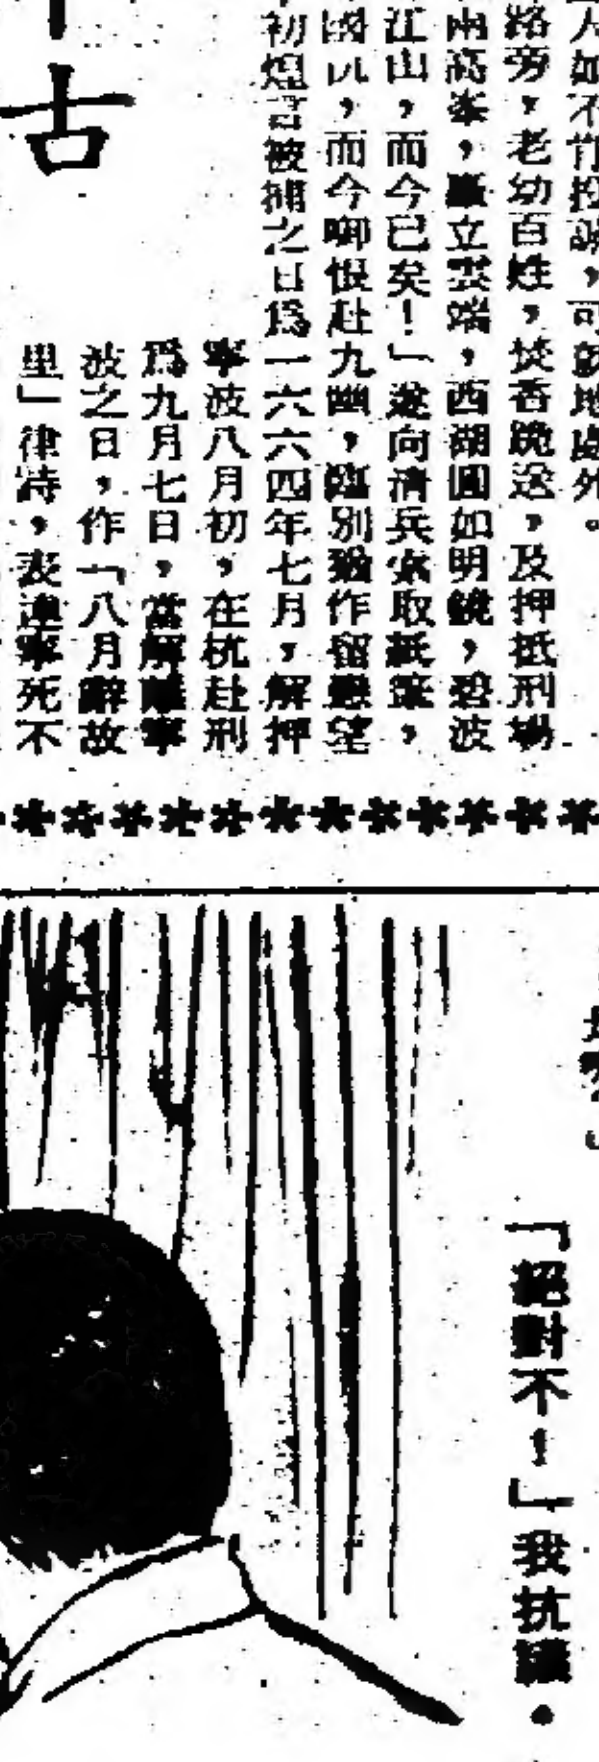 人如不肯投誠，可就地處死。
路旁，老幼百姓，焚香跪送，及押抵刑場
兩高峯，矗立雲端，西湖圓如明鏡，碧波
江山，而今已矣！」遂向清兵索取紙筆，
以，而今啣恨赴九幽，臨別猶作留戀望
初煌言被捕之日爲一六六四年七月，解押
寧波八月初，在杭赴刑
爲九月七日，當解離寧
波之日，作「八月辭故
里」律詩，表達寧死不
古
「絕對不！」我抗議。